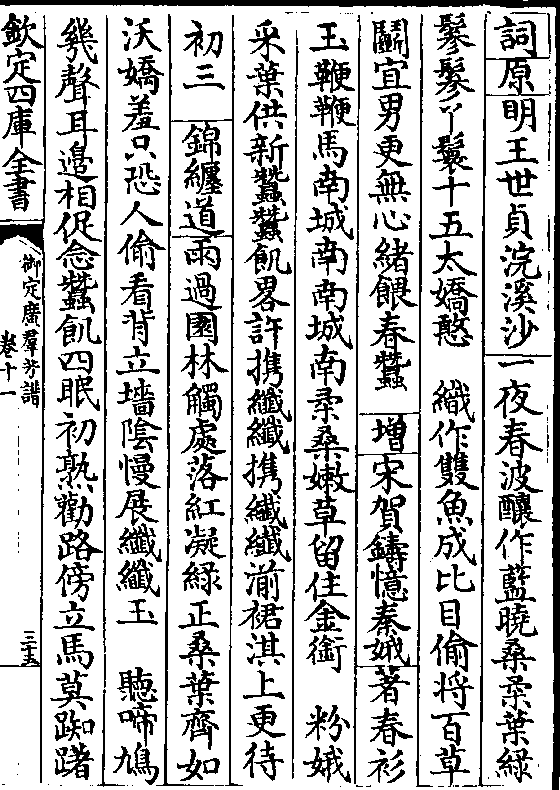 詞原明王世貞浣溪沙一夜春波釀作藍曉桑柔葉綠
鬖鬖丫鬟十五太嬌憨　織作雙魚成比目偷將百草
鬭宜男更無心緒餵春蠶　增宋賀鑄憶秦娥著春衫
玉鞭鞭馬南城南南城南柔桑嫩草留住金銜　粉娥
采葉供新蠶蠶飢畧許携纖纖携纖纖湔裙淇上更待
初三　錦纏道雨過園林觸處落紅凝綠正桑葉齊如
沃嬌羞只恐人偷看背立墻陰慢展纖纖玉　聽啼鳩
幾聲耳邉相促念蠶飢四眠初熟勸路傍立馬莫踟躇
欽定四庫全書
御定廣羣芳譜
卷十一
三十五